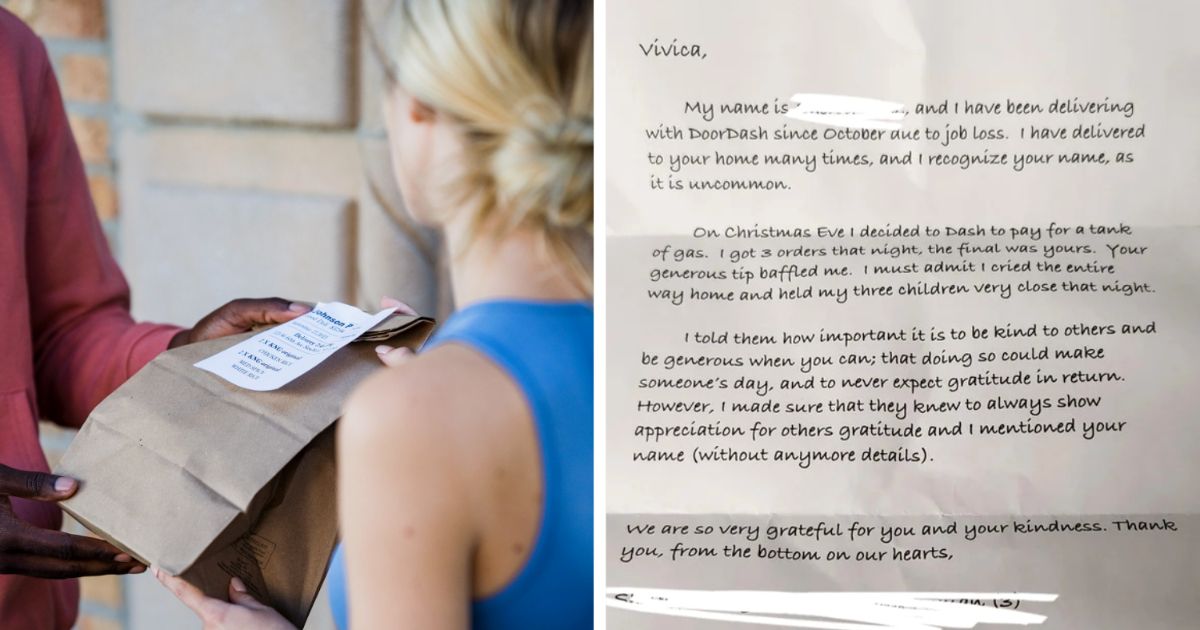 Johnson
Delivery
original
original
WHITE RICE
Vivica,
My name is , and I have been delivering
with DoorDash since October due to job loss. I have delivered
to your home many times, and I recognize your name, as
it is uncommon.
On Christmas Eve I decided to Dash to pay for a tank
of gas. I got 3 orders that night, the final was yours. Your
generous tip baffled me. I must admit I cried the entire
way home and held my three children very close that night.
I told them how important it is to be kind to others and
be generous when you can; that doing so could make
someone's day, and to never expect gratitude in return.
However, I made sure that they knew to always show
appreciation for others gratitude and I mentioned your
name (without anymore details).
We are so very grateful for you and your kindness. Thank
you, from the bottom on our hearts,
(3)